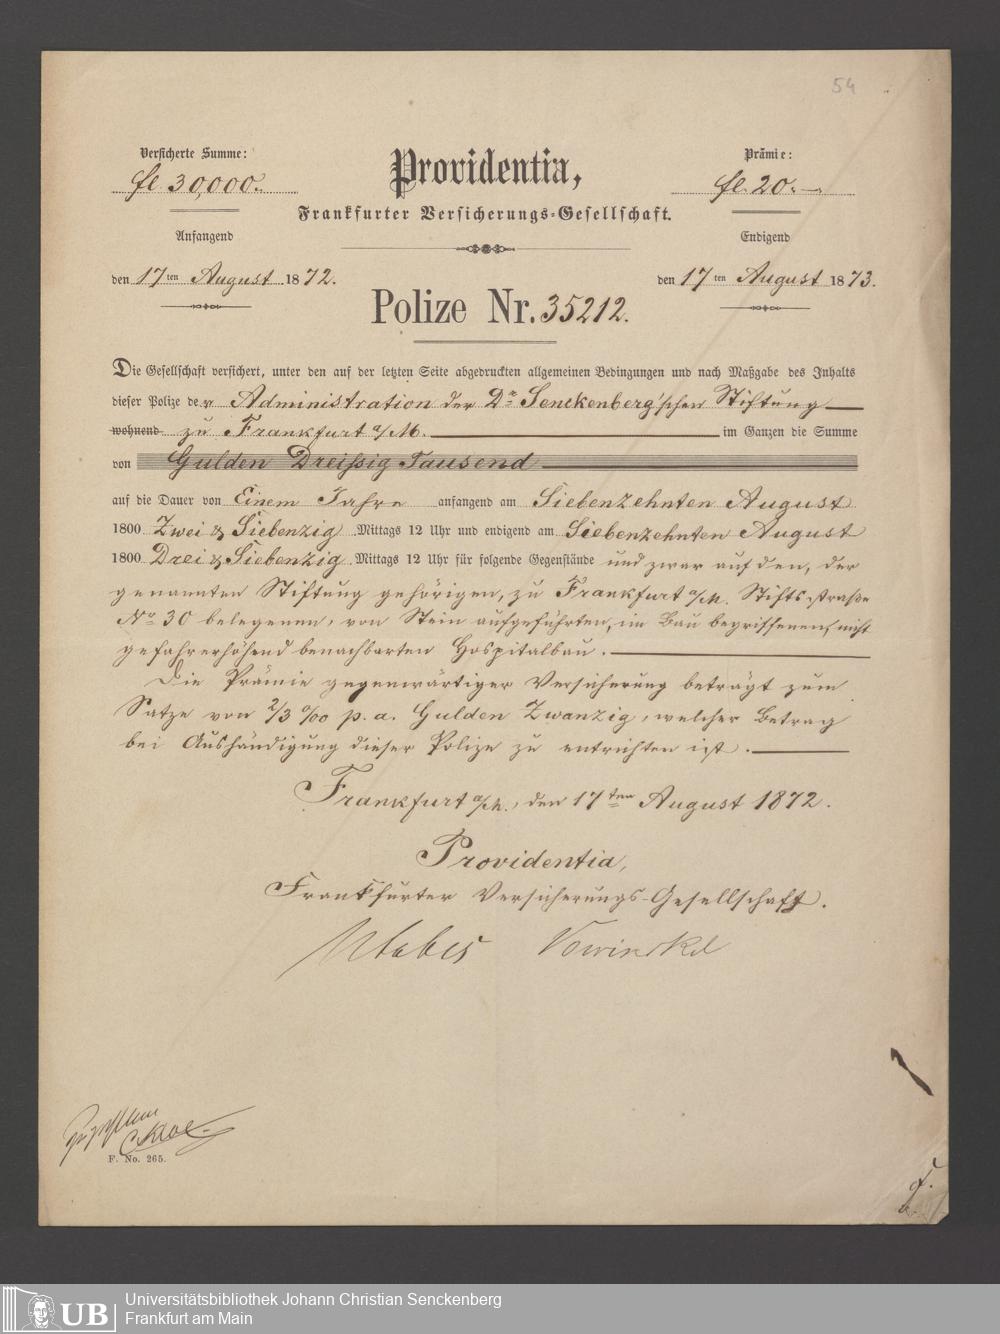 54
Versicherte Summe:
fl. 30,000.
Providentia,
Prämie:
fl. 20.—
Frankfurter Versicherungs-Gesellschaft.
Anfangend
den 17ten August 1872.
Endigend
den 17ten August 1873.
Polize Nr. 35212.
Die Gesellschaft versichert, unter den auf der letzten Seite abgedruckten allgemeinen Bedingungen und nach Maßgabe des Inhalts
dieser Polize der Administration der Dr. Senckenberg'schen Stiftung
wohnend zu Frankfurt a/M. im Ganzen die Summe
von Gulden Dreissig Tausend
auf die Dauer von Einem Jahre anfangend am Siebenzehnten August
1800 Zwei & Siebenzig Mittags 12 Uhr und endigend am Siebenzehnten August
1800 Drei & Siebenzig Mittags 12 Uhr für folgende Gegenstände und zwar auf den, der
genannten Stiftung gehörigen, zu Frankfurt a/M. Stiftsstraße
No 30 belegenen, von Stein aufgeführten, im Bau begriffenen, nicht
gefahrerhöhend benachbarten Hospitalbau.
Die Prämie gegenwärtiger Versicherung beträgt zum
Satze von 2/3 ‰ p. a. Gulden Zwanzig, welcher Betrag
bei Aushändigung dieser Polize zu entrichten ist.
Frankfurt a/M., den 17ten August 1872.
Providentia,
Frankfurter Versicherungs-Gesellschaft.
Vowinckel
F. No. 265.
UB
Universitätsbibliothek Johann Christian Senckenberg
Frankfurt am Main